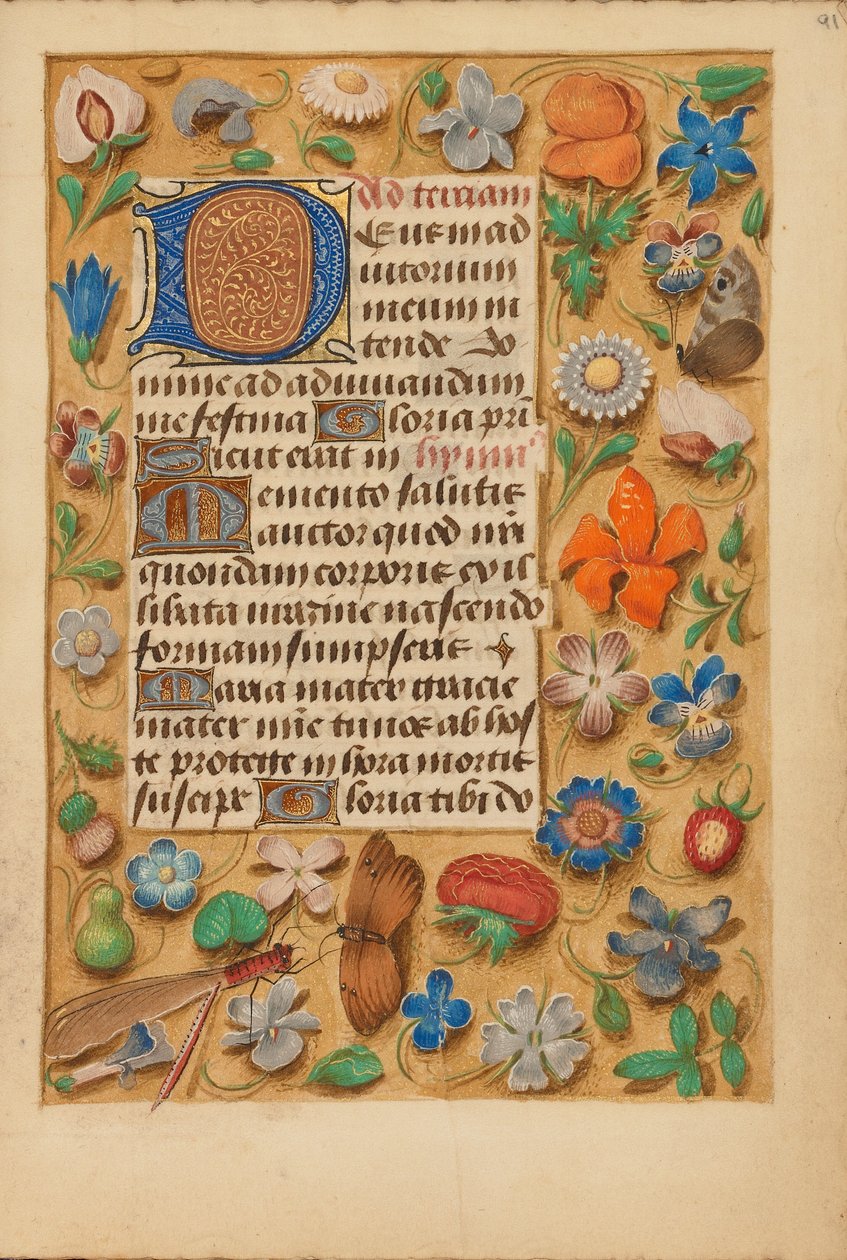 91
Ad terciam
DEus in ad
iutorium
meum in
tende Do
mine ad adiuuandum
me festina Gloria pr̄i
Sicut erat in hymnꝰ
Memento salutis
auctor quod nr̄i
quondam corporis ex il
libata uirgine nascendo
formam sumpseris
Maria mater gracie
mater mīe tu nos ab hos
te protege in hora mortis
suscipe Gloria tibi do